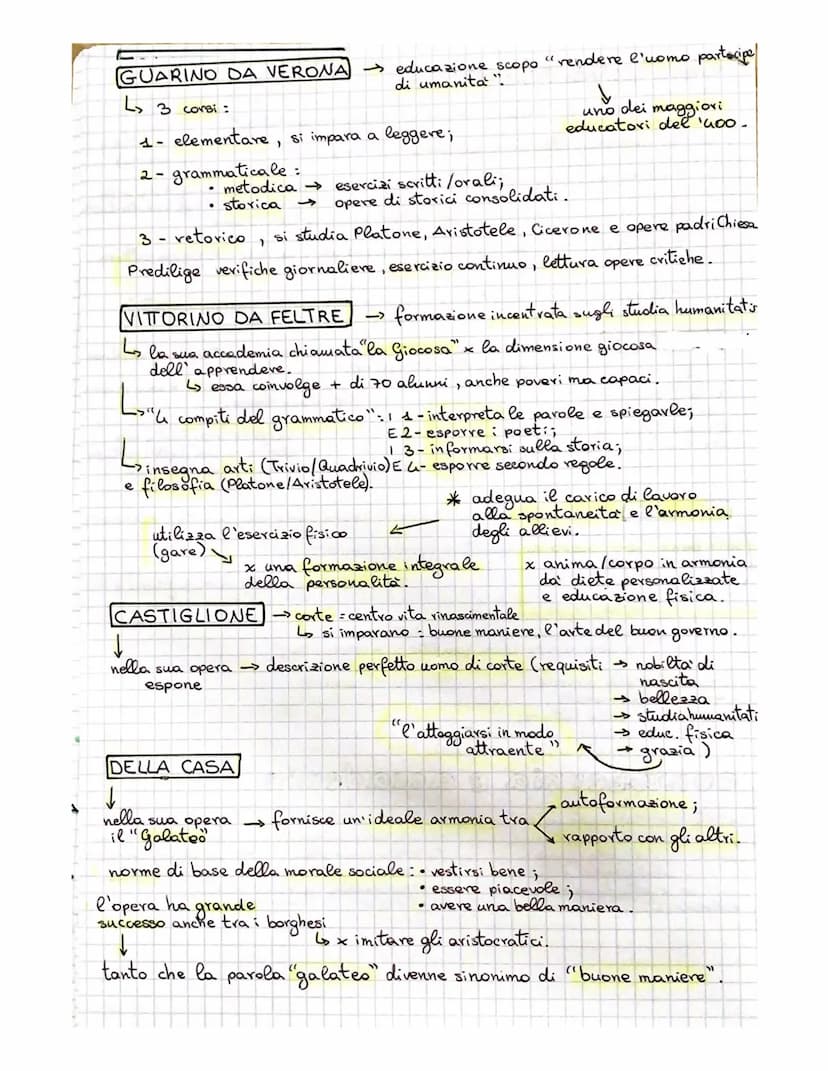 GUARINO DA VERONA → educazione scopo "rendere l'uomo partecipe
di umanità".
↳ 3 corsi :
uno dei maggiori
educatori del '400.
1- elementare, si impara a leggere;
2- grammaticale :
• metodica → esercizi scritti/orali;
• storica → opere di storici consolidati.
3 - retorico, si studia Platone, Aristotele, Cicerone e opere padri Chiesa
Predilige verifiche giornaliere, esercizio continuo, lettura opere critiche.
VITTORINO DA FELTRE → formazione incentrata sugli studia humanitatis
↳ la sua accademia chiamata "la Giocosa" x la dimensione giocosa
dell'apprendere.
↳ essa coinvolge + di 70 alunni, anche poveri ma capaci.
↳ "4 compiti del grammatico": 1- interpreta le parole e spiegarle;
2- esporre i poeti;
3- informarsi sulla storia;
↳ insegna arti (Trivio/Quadrivio) E 4- esporre secondo regole.
e filosofia (Platone/Aristotele).
* adegua il carico di lavoro
alla spontaneità e l'armonia
degli allievi.
utilizza l'esercizio fisico
(gare)
x una formazione integrale
della personalità.
x anima/corpo in armonia
da' diete personalizzate
e educazione fisica.
CASTIGLIONE → corte = centro vita rinascimentale
↳ si imparano : buone maniere, l'arte del buon governo.
↓
nella sua opera → descrizione perfetto uomo di corte (requisiti → nobiltà di
espone
nascita
→ bellezza
→ studia humanitati
→ educ. fisica
→ grazia)
"l'atteggiarsi in modo
attraente"
DELLA CASA
↓
nella sua opera → fornisce un'ideale armonia tra
il "Galateo"
autoformazione;
rapporto con gli altri.
norme di base della morale sociale : • vestirsi bene;
• essere piacevole;
• avere una bella maniera.
l'opera ha grande
successo anche tra i borghesi
↳ x imitare gli aristocratici.
↓
tanto che la parola "galateo" divenne sinonimo di "buone maniere".